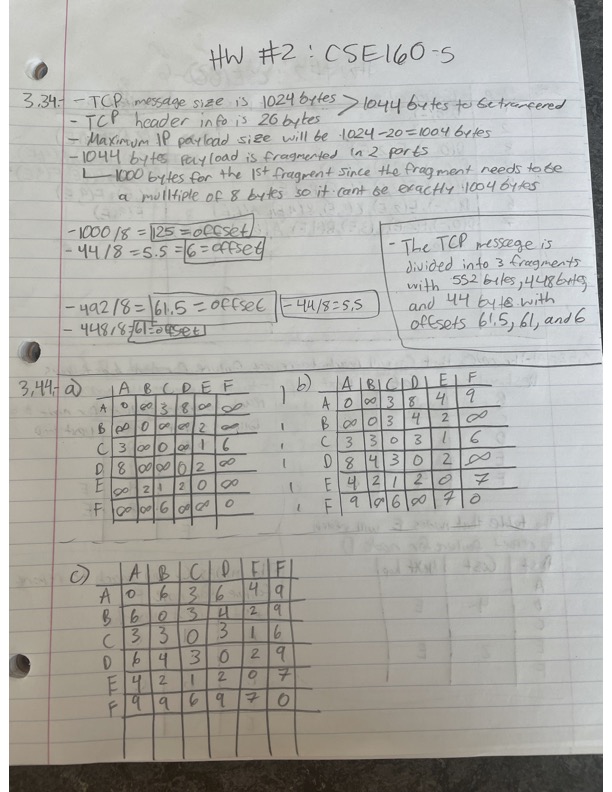 HW #2: CSE160-S
3.34- - TCP message size is 1024 bytes > 1044 bytes to be tranfered
- TCP header info is 20 bytes
- Maximum IP payload size will be 1024-20=1004 bytes
- 1044 bytes payload is fragmented in 2 parts
1000 bytes for the 1st fragment since the fragment needs to be
a mulltiple of 8 bytes so it cant be exactly 1004 bytes
-1000/8 = 125 = offset
-44/8 = 5.5 = 6 = offset
- The TCP message is
divided into 3 fragments
with 552 bytes, 448 bytes,
and 44 byte with
offsets 61.5, 61, and 6
-492/8 = 61.5 = offset -44/8=5.5
-448/8=61=offset
3.44- a) A B C D E F
A 0 ∞ 3 8 ∞ ∞
B ∞ 0 ∞ ∞ 2 ∞
C 3 ∞ 0 ∞ 1 6
D 8 ∞ ∞ 0 2 ∞
E ∞ 2 1 2 0 ∞
F ∞ ∞ 6 ∞ ∞ 0
b) A B C D E F
A 0 ∞ 3 8 4 9
B ∞ 0 3 4 2 ∞
C 3 3 0 3 1 6
D 8 4 3 0 2 ∞
E 4 2 1 2 0 7
F 9 ∞ 6 ∞ 7 0
c) A B C D E F
A 0 6 3 6 4 9
B 6 0 3 4 2 9
C 3 3 0 3 1 6
D 6 4 3 0 2 9
E 4 2 1 2 0 7
F 9 9 6 9 7 0